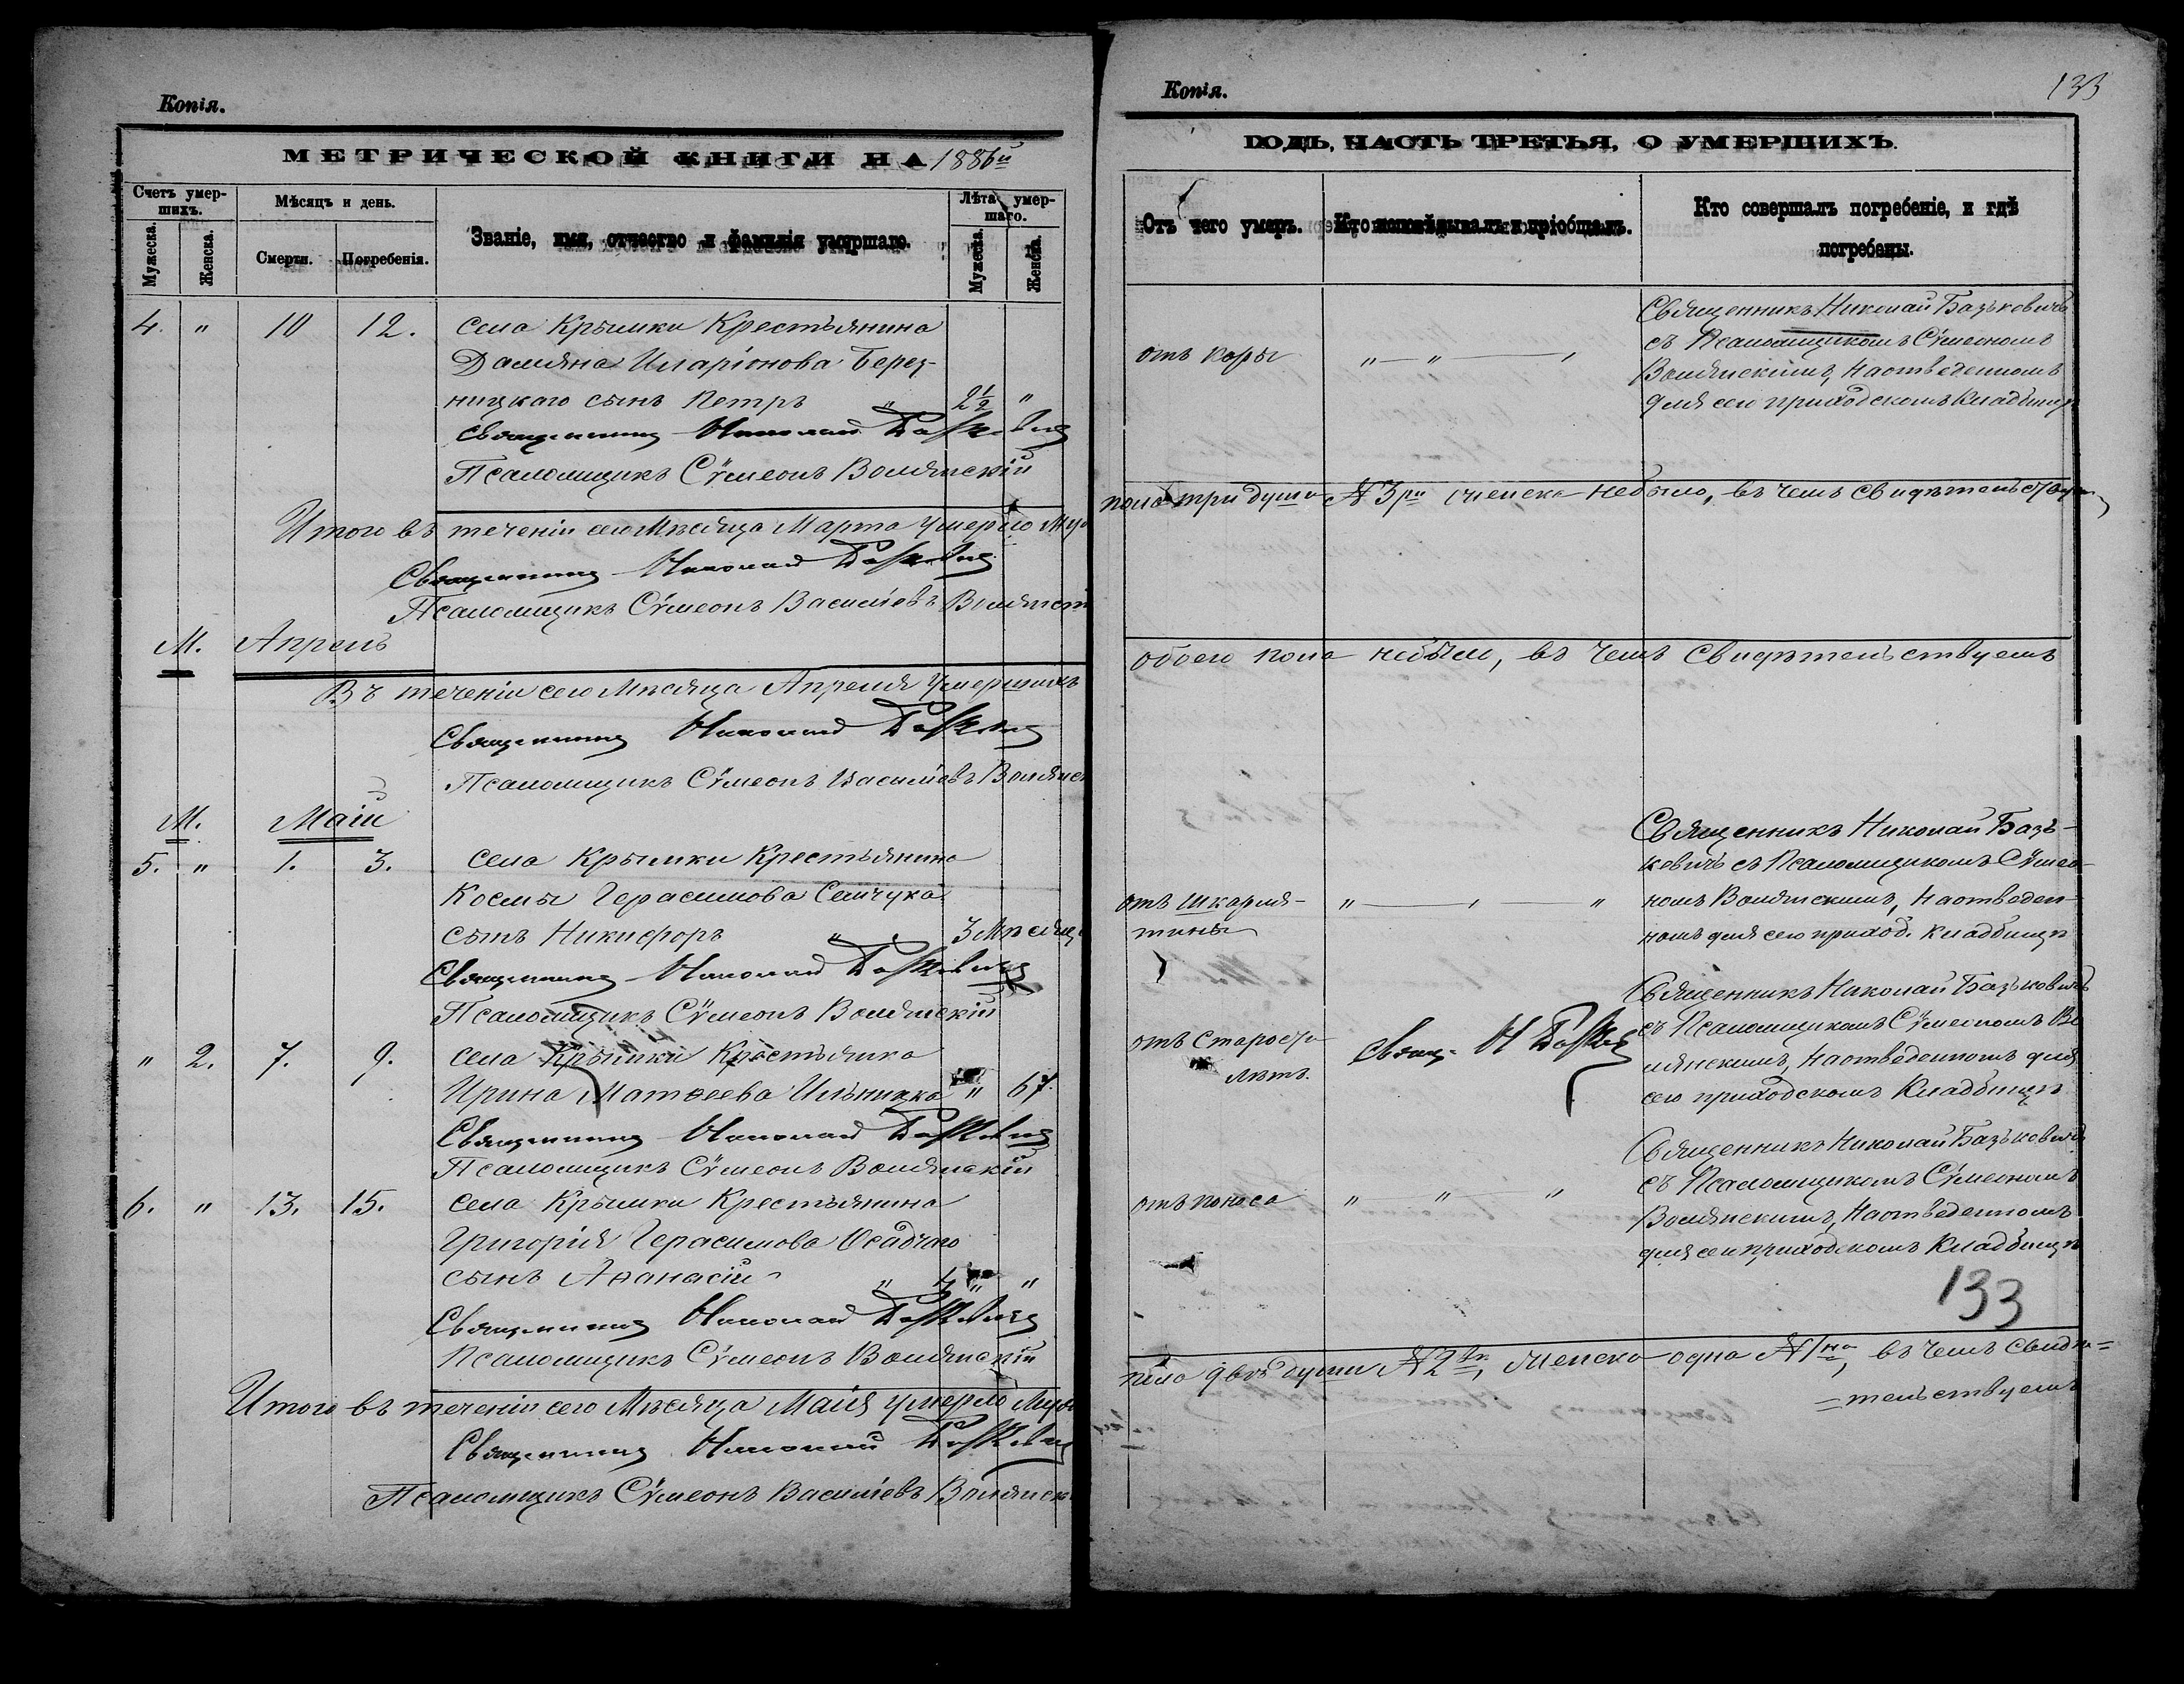 Копія.
МЕТРИЧЕСКОЙ КНИГИ НА 1886й
Счетъ умер-
шихъ.
Мѣсяцъ и день.
Званіе, имя, отчество и фамилія умершаго.
Лѣта умер-
шаго.
Мужеска.
Женска.
Смерти.
Погребенія.
Мужеска.
Женска.
4. " 10 12. Села Крымки Крестьянина
Даміяна Иларіонова Берез-
ницкаго сынъ Петръ " 2½ "
Священникъ Николай Базькевичъ
Псаломщикъ Сѵмеонъ Волянскій
Итого въ теченіи сего Мѣсяца Марта умерло Му
Священникъ Николай Базькевичъ
Псаломщикъ Сѵмеонъ Василіевъ Волянск
М. Апрель
Въ теченіи сего Мѣсяца Апреля умершихъ
Священникъ Николай Базькевичъ
Псаломщикъ Сѵмеонъ Василіевъ Волянс
М. Маій
5. " 1. 3. Села Крымки Крестьянина
Космы Герасимова Семчука
сынъ Никифоръ " 3 Мѣсяц
Священникъ Николай Базькевичъ
Псаломщикъ Сѵмеонъ Волянскій
" 2. 7. 9. Села Крымки Крестьянка
Ирина Матѳеева Ильницка " 67.
Священникъ Николай Базькевичъ
Псаломщикъ Сѵмеонъ Волянскій
6. " 13. 15. Села Крымки Крестьянина
Григорія Герасимова Осадчаго
сынъ Аѳанасій " "
Священникъ Николай Базькевичъ
Псаломщикъ Сѵмеонъ Волянскій
Итого въ теченіи сего Мѣсяца Маія умерло Муж
Священникъ Николай Базькевичъ
Псаломщикъ Сѵмеонъ Василіевъ Волянск
Копія.
133
ГОДЪ, ЧАСТЬ ТРЕТЬЯ, О УМЕРШИХЪ.
Отъ чего умеръ.
Кто исповѣдывалъ и пріобщалъ.
Кто совершалъ погребеніе, и гдѣ
погребены.
отъ коры " — " — "
Священникъ Николай Базькевичъ
съ Псаломщикомъ Сѵмеономъ
Волянскимъ, на отведенномъ
для сего приходскомъ Кладбищѣ
пола три души № 3ри женска небыло, въ чемъ свидѣтельствуемъ
обоего пола небыло, въ чемъ свидѣтельствуемъ
отъ шкарля-
тины
" — " — "
Священникъ Николай Базь-
кевичъ съ Псаломщикомъ Сѵмео-
номъ Волянскимъ, на отведен-
номъ для сего приход. кладбищѣ
отъ старости
лѣтъ.
Свящ. Н Базькев
Священникъ Николай Базькевичъ
съ Псаломщикомъ Сѵмеономъ Во
лянскимъ, на отведенномъ для
сего приходскомъ Кладбищѣ
отъ поноса " " — "
Священникъ Николай Базькевичъ
съ Псаломщикомъ Сѵмеономъ
Волянскимъ, на отведенномъ
для сего приходскомъ Кладбищѣ
133
пола двѣ души № 2вѣ, женска одна № 1на, въ чемъ свидѣ=
=тельствуемъ